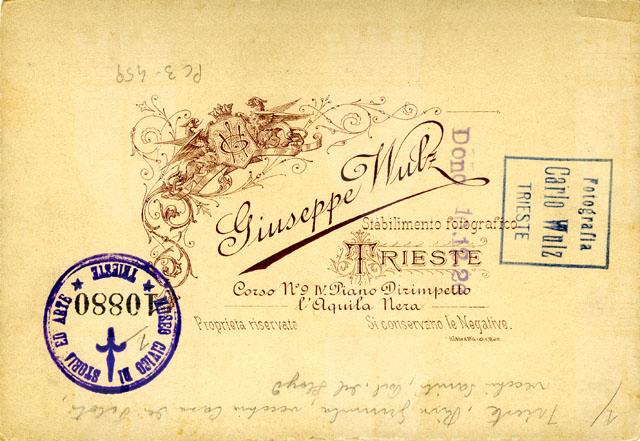 Pc 3-459
Giuseppe Wulz
Stabilimento fotografico
TRIESTE
Corso Nº 9 IV Piano Dirimpetto
l'Aquila Nera
Proprietà riservate
Si conservano le Negative.
Dono
Fotografia
Carlo Wulz
TRIESTE
MUSEO CIVICO DI STORIA ED ARTE
★ TRIESTE ★
10880
Trieste, Riva Grumula, vecchia Casa dei Piloti,
vecchi Saniti, Col. del Lloyd